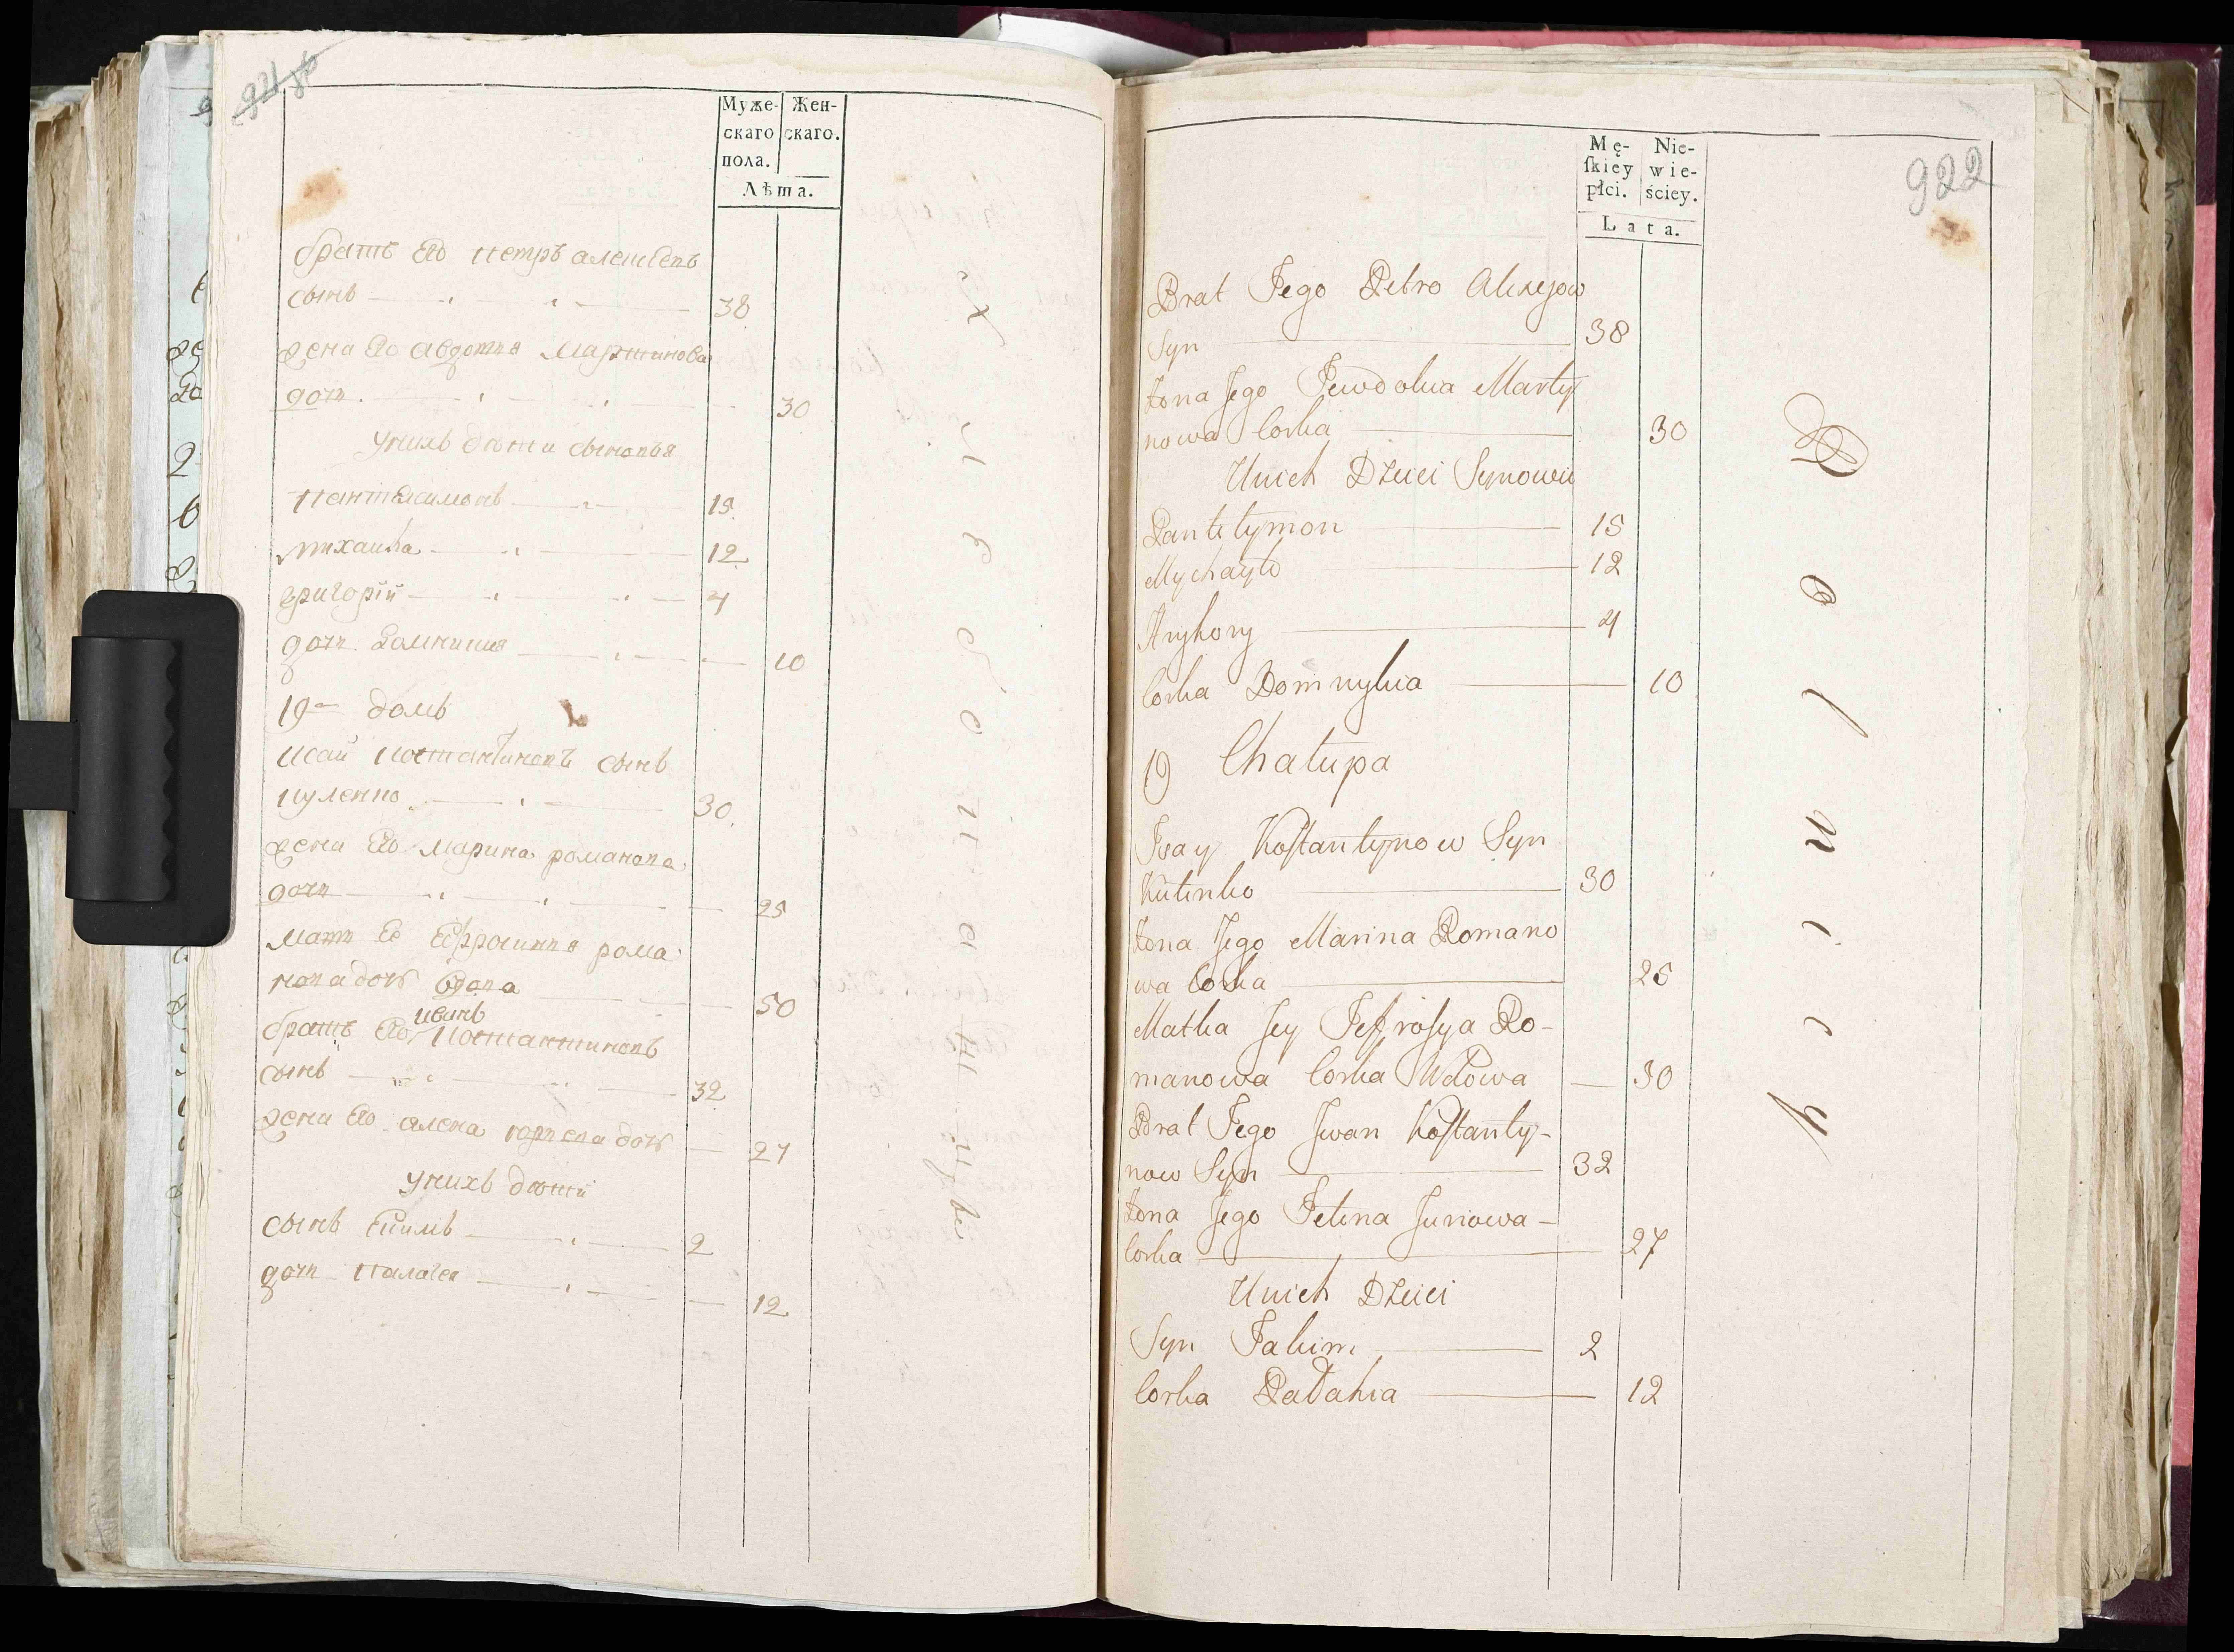 921 об
Муже- Жен-
скаго скаго.
пола.
Лѣта.
братъ Его петръ алешеевъ
сынъ 38
жена Его авдотия Мартинова
дочь 30
Унихъ дѣти сыновья
пантелимонъ 15
михаила 12
григорій 4
дочь Домникия 10
19 домъ
Исай костантиновъ сынъ
куленко 30
жена Его марина романова
дочь 25
мати Ее Ефросиния рома
нова дочь вдова 50
иванъ
братъ Его костантиновъ
сынъ 32
жена Его алена дочь 27
Унихъ дѣти
сынъ Екимъ 2
дочь палагея 12
922
Mę- Nie-
ſkiey wie-
płci. ściey.
Lata.
Brat Jego Petro Alexejow
Syn 38
Żona Jego Jewdokia Marty
nowa Corka 30
Unich Dzieci Synowie
Pantelymon 15
Mychayło 12
Hryhory 4
Corka Domnykia 10
19 Chałupa
Isay Kostantynow Syn
Kulenko 30
Żona Jego Marina Romano
wa Corka 25
Matka Jey Jefrosya Ro-
manowa Corka Wdowa 50
Brat Jego Iwan Kostanty-
now Syn 32
Żona Jego Jelena Juriowa-
Corka 27
Unich Dzieci
Syn Jakim 2
Corka Pałahia 12